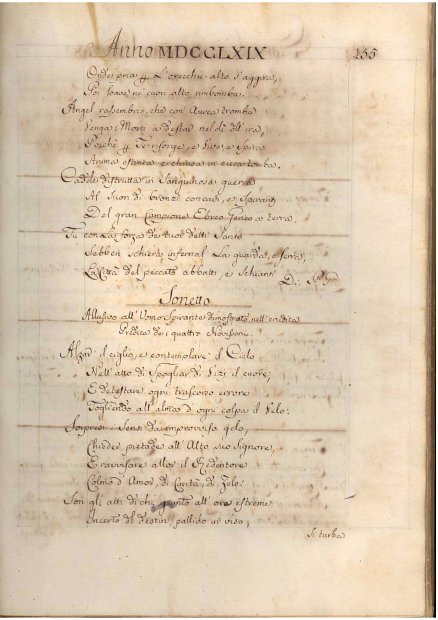 Anno MDCCLXIX 255
Ode pria p L'orecchie alto s'aggira,
Poi soave ne cuori alto rimbomba.
Angel rassembri, che con Aurea tromba
Venga i Morti a destar nel dì dell'ira,
Poichè p Te risorge, e vive, e spira
Anima estinta e chiusa in cieca tomba.
Cadde distrutta in Sanguinosa guerra
Al Suon di bronzi concavi, e
Del gran Campione Ebreo Gerico a terra.
Tu con La forza de' tuoi detti Santi
Sebben schiera infernal La guarda, e serra,
La Città del peccato abbatti, e schianti
Di: S. P.
Sonetto
Allusivo all'Uomo Spirante dimostrato nell'erudita
Predica dei quattro Novissimi.
Alzar il ciglio, e contemplare il Cielo
Nell'atto di Spogliar di Vizi il cuore,
E detestare ogni trascorso errore
Togliendo all'alma d'ogni colpa il Velo:
Sorpresi i Sensi da improvviso gelo,
Chieder pietade all'Alto suo Signore,
E ravvisare allor il Redentore
Colmo d'Amor, di Carità, di Zelo:
Son gli atti di chi giunto all'ore estreme
Incerto del destin, pallido in viso,
Si turba